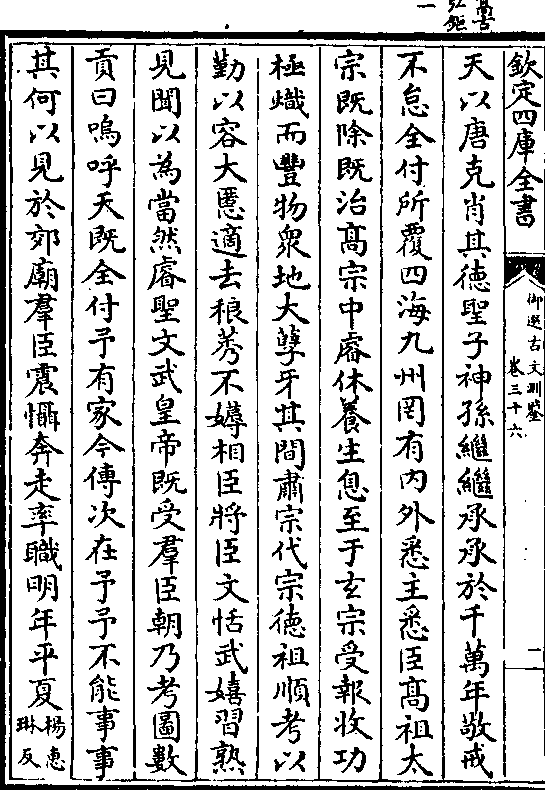 高古
弘鉅
一
欽定四庫全書
御選古文淵鑒
卷三十六
二
天以唐克肖其德聖子神孫繼繼承承於千萬年敬戒
不怠全付所覆四海九州罔有內外悉主悉臣高祖太
宗既除既治高宗中睿休養生息至于玄宗受報收功
極熾而豐物衆地大孽牙其間肅宗代宗德祖順考以
勤以容大慝適去稂莠不媷相臣將臣文恬武嬉習熟
見聞以為當然睿聖文武皇帝既受羣臣朝乃考圖數
貢曰嗚呼天既全付予有家今傳次在予予不能事事
其何以見於郊廟羣臣震懾奔走率職明年平夏楊惠
琳反